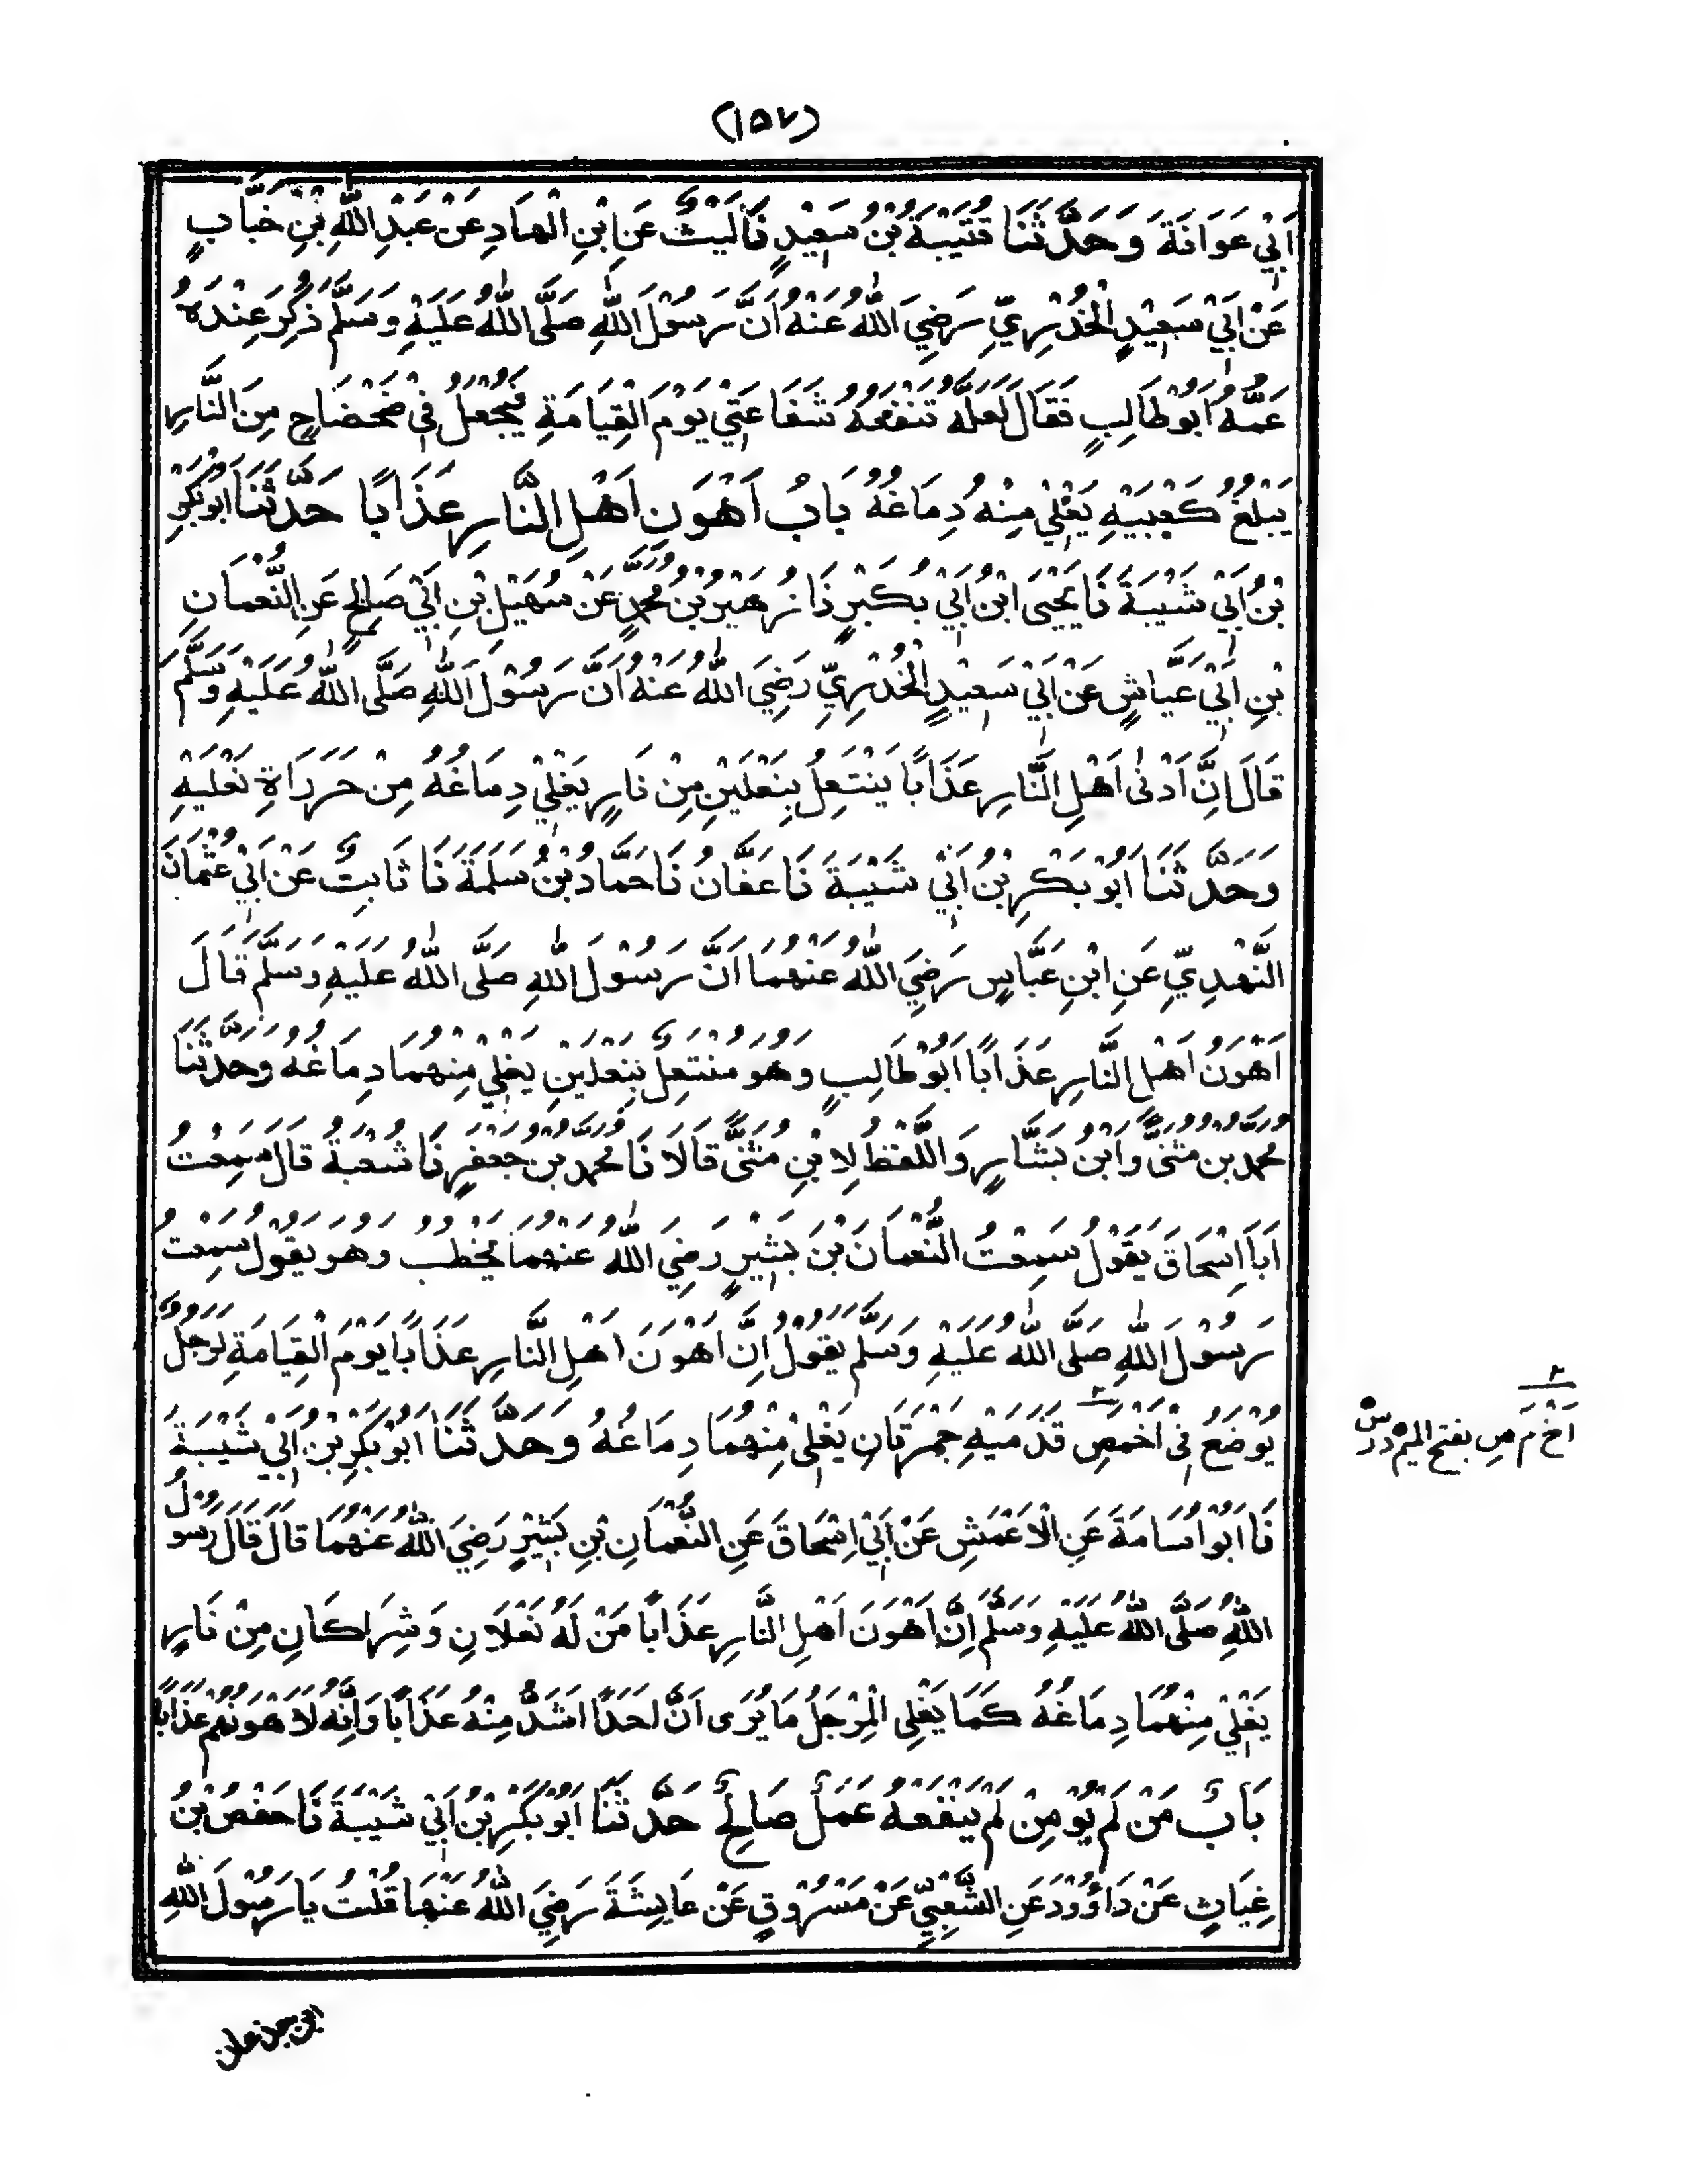 (١٥٧)
اَبِيْ عَوَانَةَ وَحَدَّثَنَا قُتَيْبَةُ بْنُ سَعِيْدٍ نَا لَيْثٌ عَنِ ابْنِ الْهَادِ عَنْ عَبْدِ اللّٰهِ بْنِ خَبَّابٍ
عَنْ اَبِيْ سَعِيْدٍ الْخُدْرِيِّ رَضِيَ اللّٰهُ عَنْهُ اَنَّ رَسُوْلَ اللّٰهِ صَلَّى اللّٰهُ عَلَيْهِ وَسَلَّمَ ذُكِرَ عِنْدَهُ
عَمُّهُ اَبُوْ طَالِبٍ فَقَالَ لَعَلَّهُ تَنْفَعُهُ شَفَاعَتِيْ يَوْمَ الْقِيَامَةِ فَيُجْعَلُ فِيْ ضَحْضَاحٍ مِنَ النَّارِ
يَبْلُغُ كَعْبَيْهِ يَغْلِيْ مِنْهُ دِمَاغُهُ بَابُ اَهْوَنِ اَهْلِ النَّارِ عَذَابًا حَدَّثَنَا اَبُوْ بَكْرِ
بْنُ اَبِيْ شَيْبَةَ نَا يَحْيَى ابْنُ اَبِيْ بُكَيْرٍ نَا زُهَيْرُ بْنُ مُحَمَّدٍ عَنْ سُهَيْلِ بْنِ اَبِيْ صَالِحٍ عَنِ النُّعْمَانِ
بْنِ اَبِيْ عَيَّاشٍ عَنْ اَبِيْ سَعِيْدٍ الْخُدْرِيِّ رَضِيَ اللّٰهُ عَنْهُ اَنَّ رَسُوْلَ اللّٰهِ صَلَّى اللّٰهُ عَلَيْهِ وَسَلَّمَ
قَالَ اِنَّ اَدْنٰى اَهْلِ النَّارِ عَذَابًا يَنْتَعِلُ بِنَعْلَيْنِ مِنْ نَارٍ يَغْلِيْ دِمَاغُهُ مِنْ حَرَرَاةِ نَعْلَيْهِ
وَحَدَّثَنَا اَبُوْ بَكْرِ بْنُ اَبِيْ شَيْبَةَ نَا عَفَّانُ نَا حَمَّادُ بْنُ سَلَمَةَ نَا ثَابِتٌ عَنْ اَبِيْ عُثْمَانَ
النَّهْدِيِّ عَنِ ابْنِ عَبَّاسٍ رَضِيَ اللّٰهُ عَنْهُمَا اَنَّ رَسُوْلَ اللّٰهِ صَلَّى اللّٰهُ عَلَيْهِ وَسَلَّمَ قَالَ
اَهْوَنُ اَهْلِ النَّارِ عَذَابًا اَبُوْ طَالِبٍ وَهُوَ مُنْتَعِلٌ بِنَعْلَيْنِ يَغْلِيْ مِنْهُمَا دِمَاغُهُ وَحَدَّثَنَا
مُحَمَّدُ بْنُ مُثَنًّى وَابْنُ بَشَّارٍ وَاللَّفْظُ لِابْنِ مُثَنًّى قَالَا نَا مُحَمَّدُ بْنُ جَعْفَرٍ نَا شُعْبَةُ قَالَ سَمِعْتُ
اَبَا اِسْحَاقَ يَقُوْلُ سَمِعْتُ النُّعْمَانَ بْنَ بَشِيْرٍ رَضِيَ اللّٰهُ عَنْهُمَا يَخْطُبُ وَهُوَ يَقُوْلُ سَمِعْتُ
رَسُوْلَ اللّٰهِ صَلَّى اللّٰهُ عَلَيْهِ وَسَلَّمَ يَقُوْلُ اِنَّ اَهْوَنَ اَهْلِ النَّارِ عَذَابًا يَوْمَ الْقِيَامَةِ لَرَجُلٌ
يُوْضَعُ فِيْ اَخْمَصِ قَدَمَيْهِ جَمْرَتَانِ يَغْلِيْ مِنْهُمَا دِمَاغُهُ وَحَدَّثَنَا اَبُوْ بَكْرِ بْنُ اَبِيْ شَيْبَةَ
نَا اَبُوْ اُسَامَةَ عَنِ الْاَعْمَشِ عَنْ اَبِيْ اِسْحَاقَ عَنِ النُّعْمَانِ بْنِ بَشِيْرٍ رَضِيَ اللّٰهُ عَنْهُمَا قَالَ قَالَ رَسُوْلُ
اللّٰهِ صَلَّى اللّٰهُ عَلَيْهِ وَسَلَّمَ اِنَّ اَهْوَنَ اَهْلِ النَّارِ عَذَابًا مَنْ لَهُ نَعْلَانِ وَشِرَاكَانِ مِنْ نَارٍ
يَغْلِيْ مِنْهُمَا دِمَاغُهُ كَمَا يَغْلِى الْمِرْجَلُ مَا يُرَى اَنَّ اَحَدًا اَشَدُّ مِنْهُ عَذَابًا وَاِنَّهُ لَاَهْوَنُهُمْ عَذَابًا
بَابٌ مَنْ لَمْ يُؤْمِنْ لَمْ يَنْفَعْهُ عَمَلٌ صَالِحٌ حَدَّثَنَا اَبُوْ بَكْرِ بْنُ اَبِيْ شَيْبَةَ نَا حَفْصُ بْنُ
غِيَاثٍ عَنْ دَاؤُوْدَ عَنِ الشَّعْبِيِّ عَنْ مَسْرُوْقٍ عَنْ عَايِشَةَ رَضِيَ اللّٰهُ عَنْهَا قُلْتُ يَا رَسُوْلَ اللّٰهِ
٢
اَخْ مَ صِ بفتح الميم
ابن جدعان